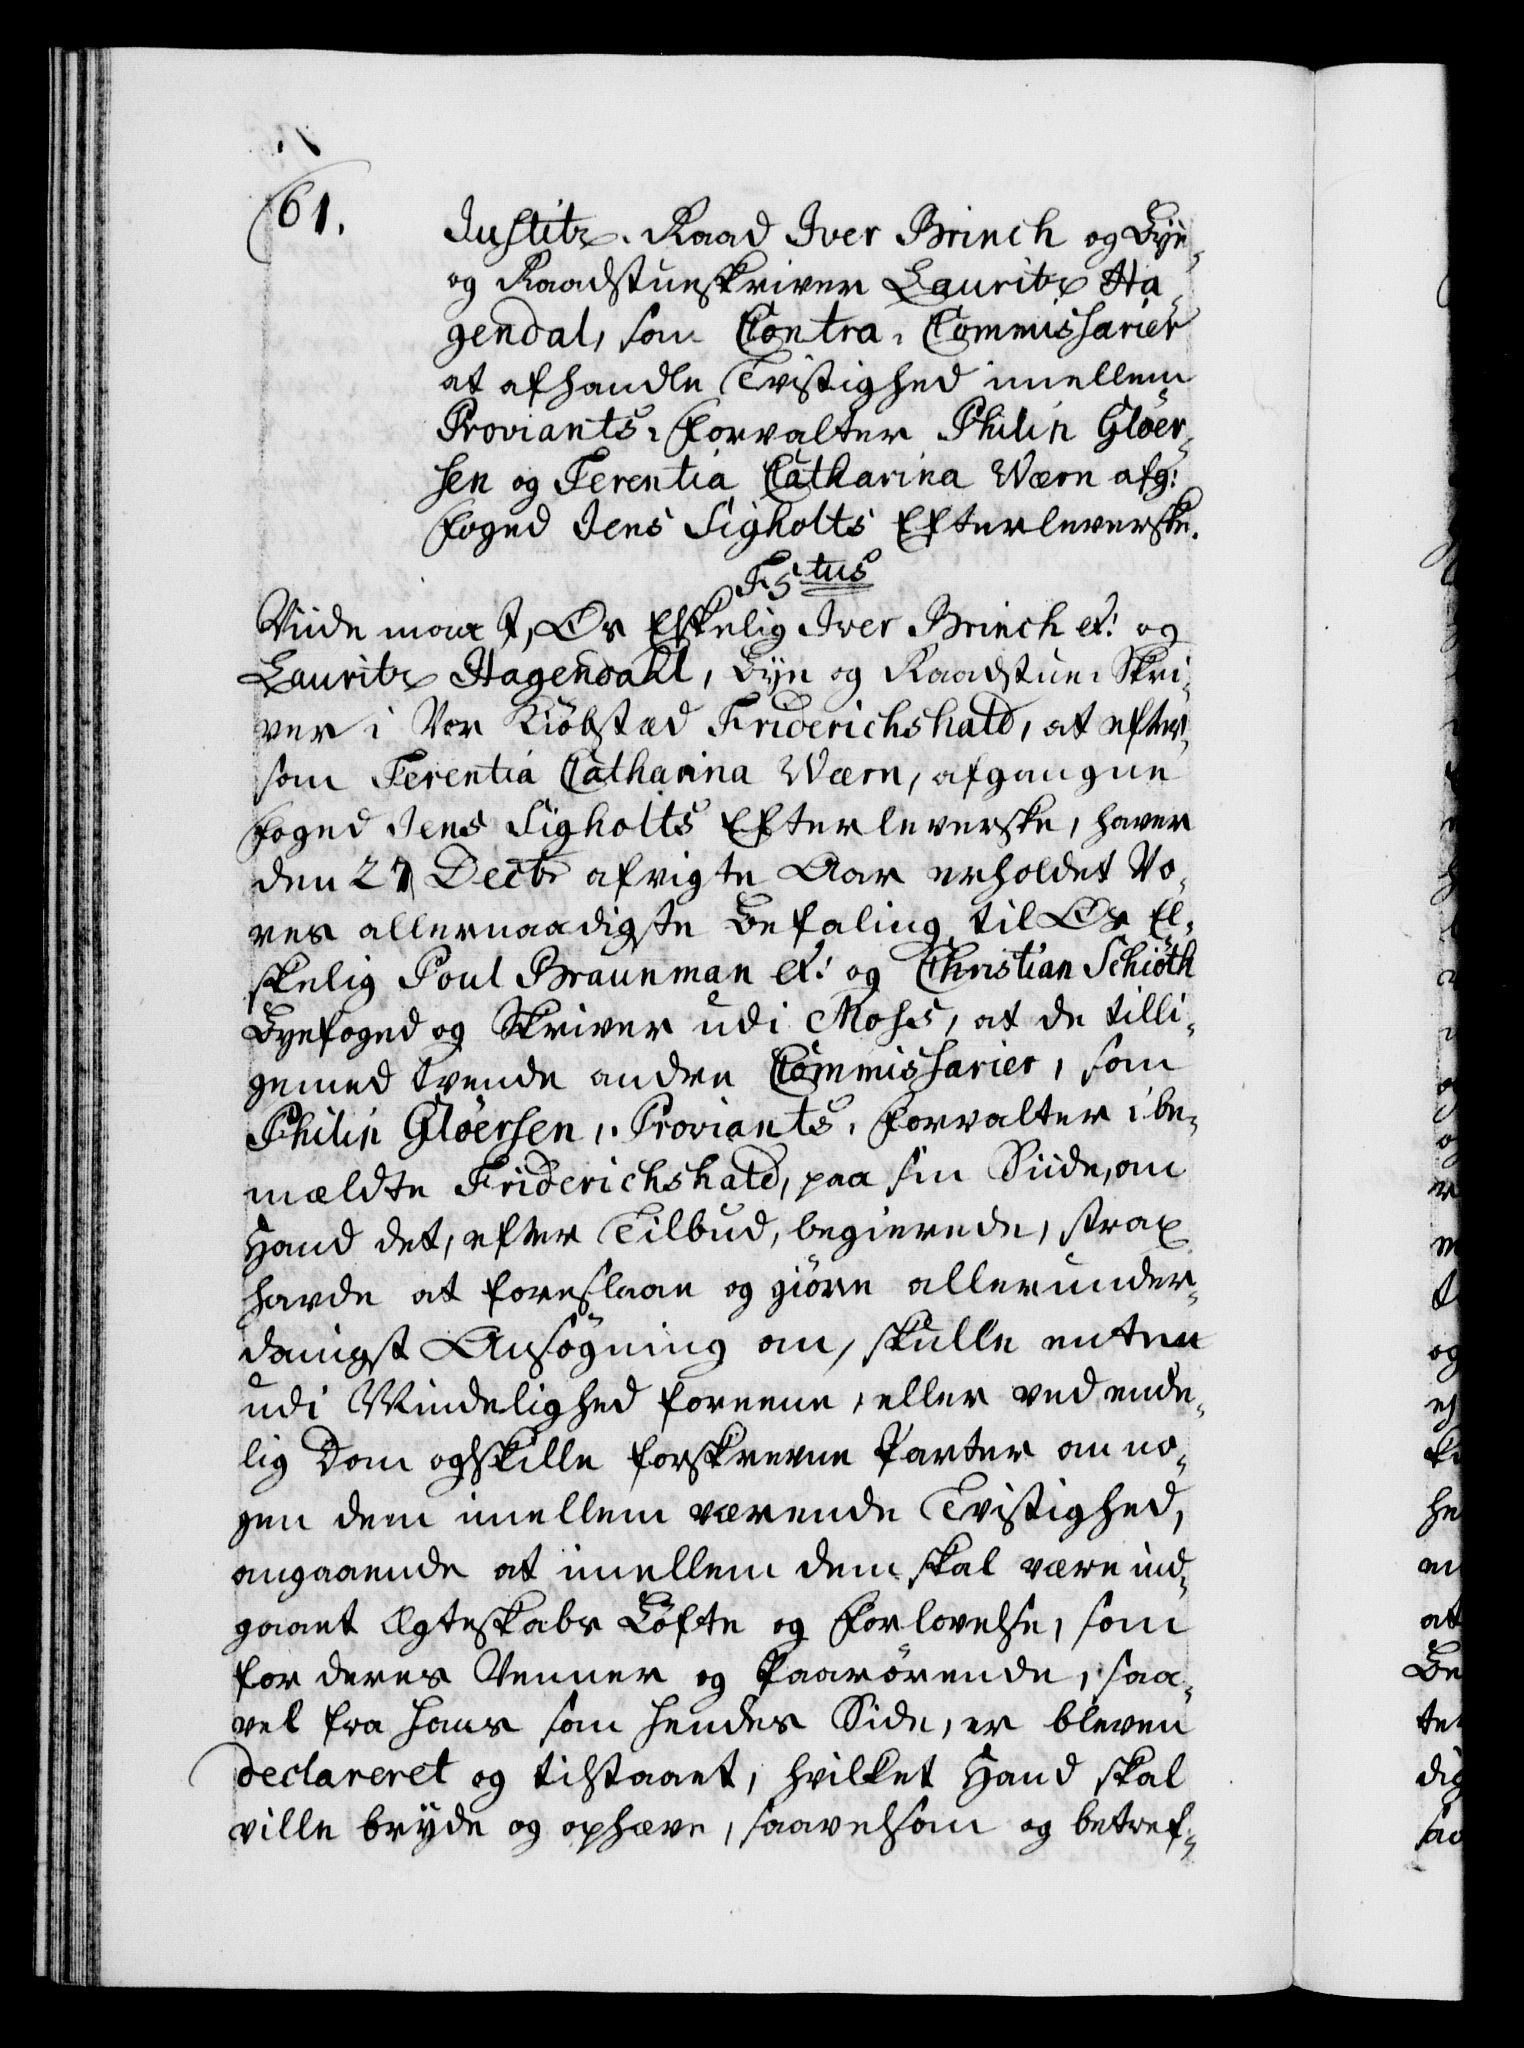 61.
Justitz-Raad Iver Brinch og Bÿe-
og Raadstueskriver Lauritz Ha-
gendal, som Contra-Commissarier
at afhandle Tvistighed imellem
Proviants-Forvalter Philip Gløer-
sen og Terentia Catharina Wærn afg:
Foged Jens Sigholts Efterleverske.
F5tus
Viide maae I, Os Elskelig Iver Brinch &: og
Lauritz Hagendahl, Bÿe og Raadstue-Skri-
ver i Vor Kiøbstæd Friderichshald, at efter-
som Terentia Catharina Wærn, afgangne
Foged Jens Sigholts Efterleverske, haver
den 27 Decbr afvigte Aar erholdet Vo-
res allernaadigste Befaling til Os El-
skelig Poul Braunman &: og Christian Schiøth
Byefoged og Skriver udi Moss, at de tilli-
gemed tvende andre Commissarier, som
Philip Gløersen, Proviants-Forvalter i be-
mældte Friderichshald, paa sin Siide, om
Hand det, efter Tilbud, begierede, strax
havde at foreslaae og giøre allerunder-
danigst Ansøgning om, skulle enten
udi Mindelighed foreene, eller ved ende-
lig Dom adskille forskrevne Parter om no-
gen dem imellem værende Tvistighed,
angaaende at imellem dem skal være ind-
gaaet Ægteskabs Løfte og Forlovelse, som
for deres Venner og Paarørende, saa-
vel fra hans som hendes Side, er bleven
declareret og tilstaaet, hvilket Hand skal
ville brÿde og ophæve, saavelsom og betref-